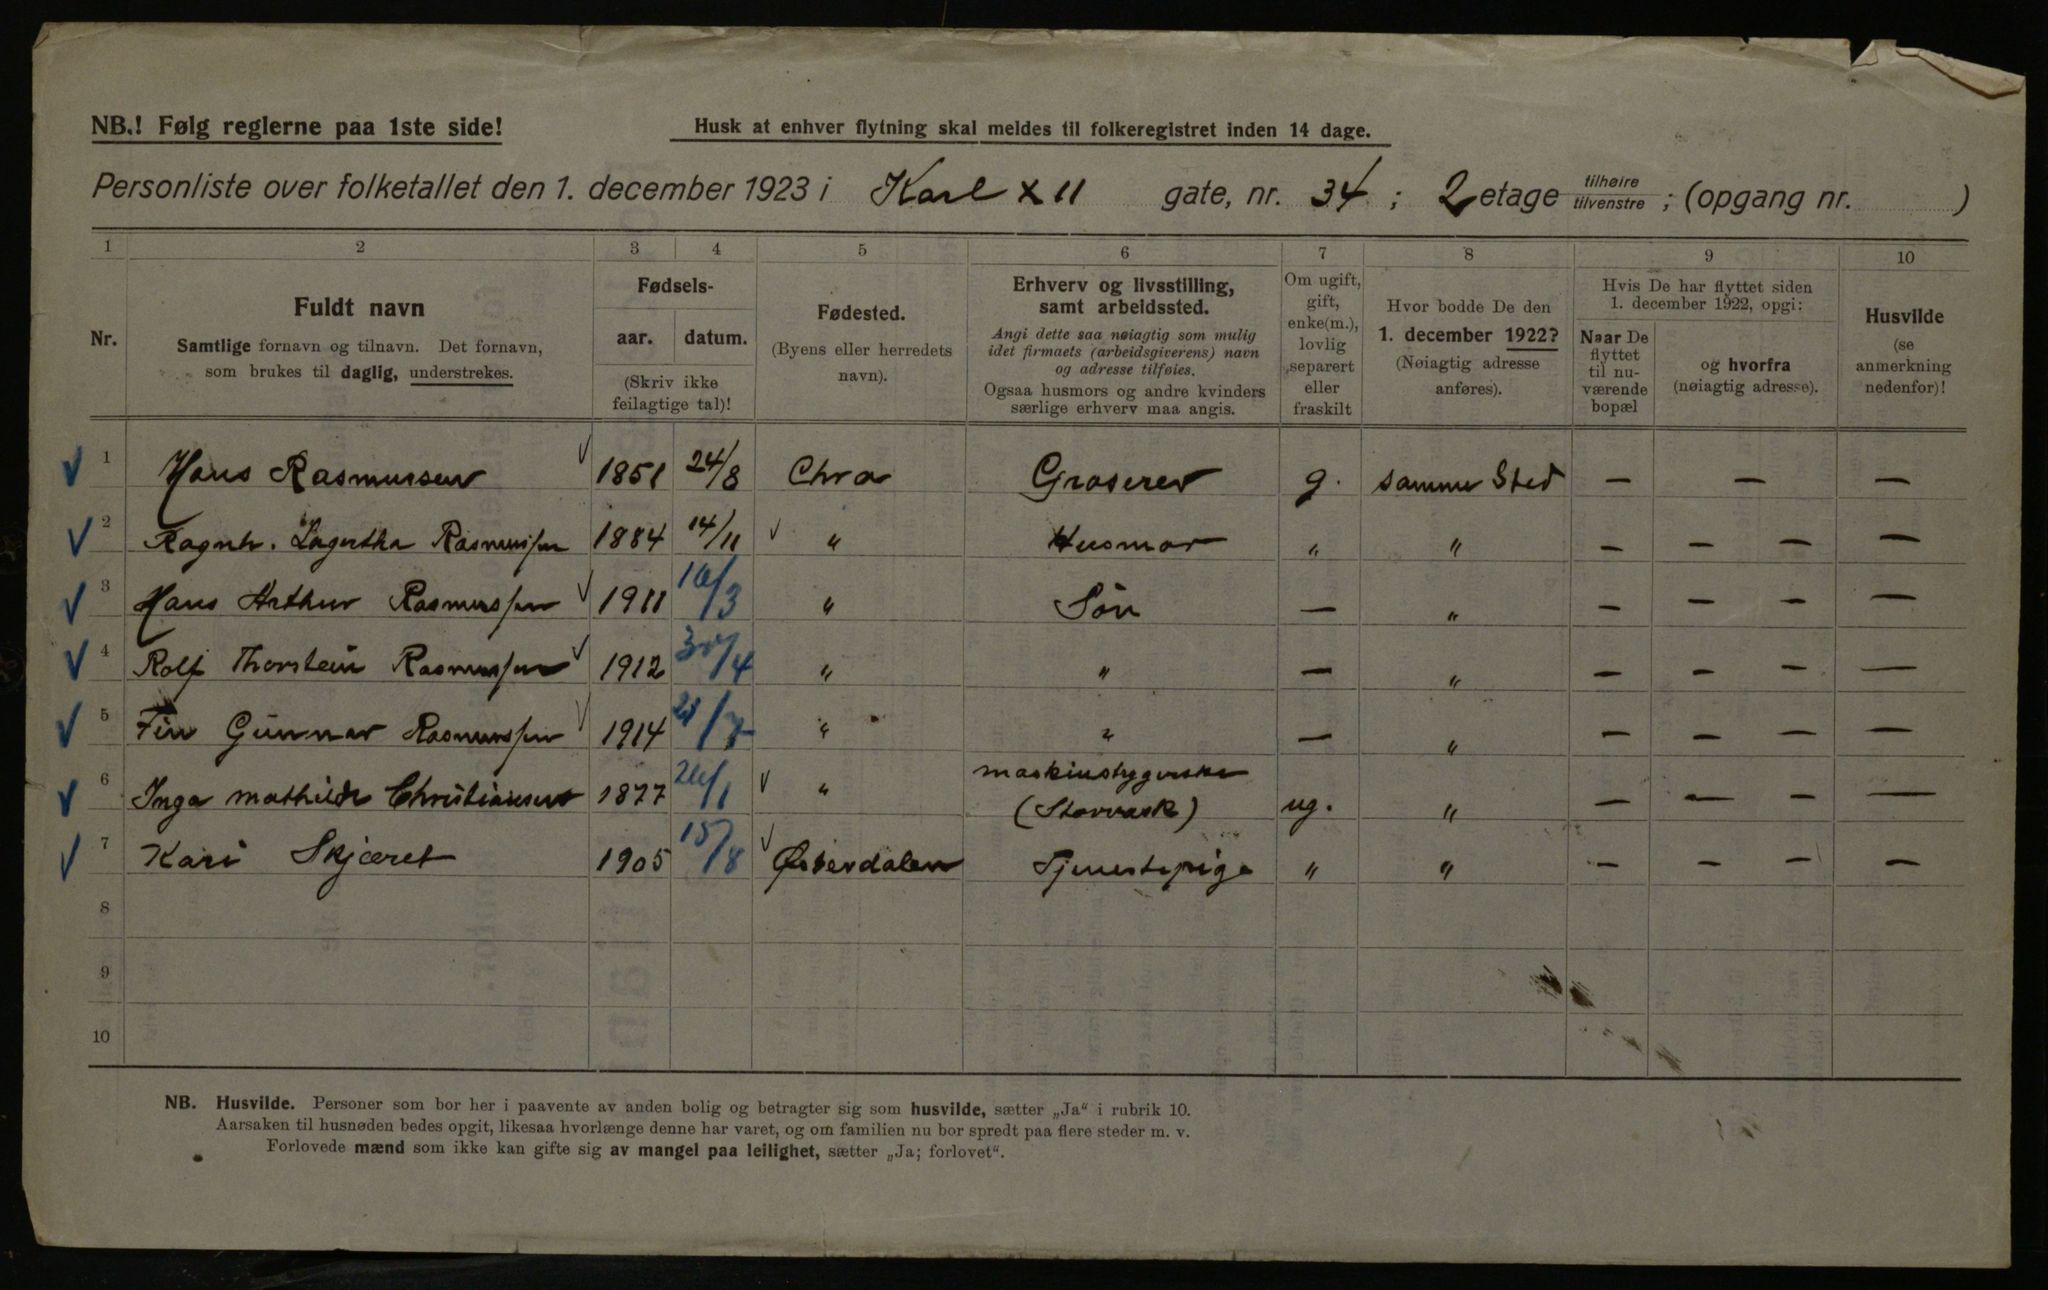 NB.! Følg reglerne paa 1ste side!
Husk at enhver flytning skal meldes til folkeregistret inden 14 dage.
Personliste over folketallet den 1. december 1923 i Karl XII gate, nr. 34 ; 2 etage tilhøire tilvenstre ; (opgang nr. )
1 2 3 4 5 6 7 8 9 10
Nr.
Fuldt navn
Samtlige fornavn og tilnavn. Det fornavn,
som brukes til daglig, understrekes.
Fødsels-
aar. datum.
(Skriv ikke
feilagtige tal)!
Fødested.
(Byens eller herredets
navn).
Erhverv og livsstilling,
samt arbeidssted.
Angi dette saa nøiagtig som mulig
idet firmaets (arbeidsgiverens) navn
og adresse tilføies.
Ogsaa husmors og andre kvinders
særlige erhverv maa angis.
Om ugift,
gift,
enke(m.),
lovlig
separert
eller
fraskilt
Hvor bodde De den
1. december 1922?
(Nøiagtig adresse
anføres).
Hvis De har flyttet siden
1. december 1922, opgi:
Naar De
flyttet
til nu-
værende
bopæl
og hvorfra
(nøiagtig adresse).
Husvilde
(se
anmerkning
nedenfor)!
1 Hans Rasmussen 1851 24/8 Chra Groserer g. samme Sted — — —
2 Ragnh. Lagertha Rasmussen 1884 14/11 " Husmor " " — — — —
3 Hans Arthur Rasmussen 1911 16/3 " Søn — " — — — —
4 Rolf Thorstein Rasmussen 1912 30/4 " " — " — — — —
5 Finn Gunnar Rasmussen 1914 " " — " — — — —
6 Inga Mathilde Christiansen 1877 26/1 " maskinstrygerske
(Storvask) ug. " — — — —
7 Kari Skjæret 1905 15/8 Østerdalen Tjenestepige " " — — — —
8
9
10
NB. Husvilde. Personer som bor her i paavente av anden bolig og betragter sig som husvilde, sætter „Ja" i rubrik 10.
Aarsaken til husnøden bedes opgit, likesaa hvorlænge denne har varet, og om familien nu bor spredt paa flere steder m. v.
Forlovede mænd som ikke kan gifte sig av mangel paa leilighet, sætter „Ja; forlovet".